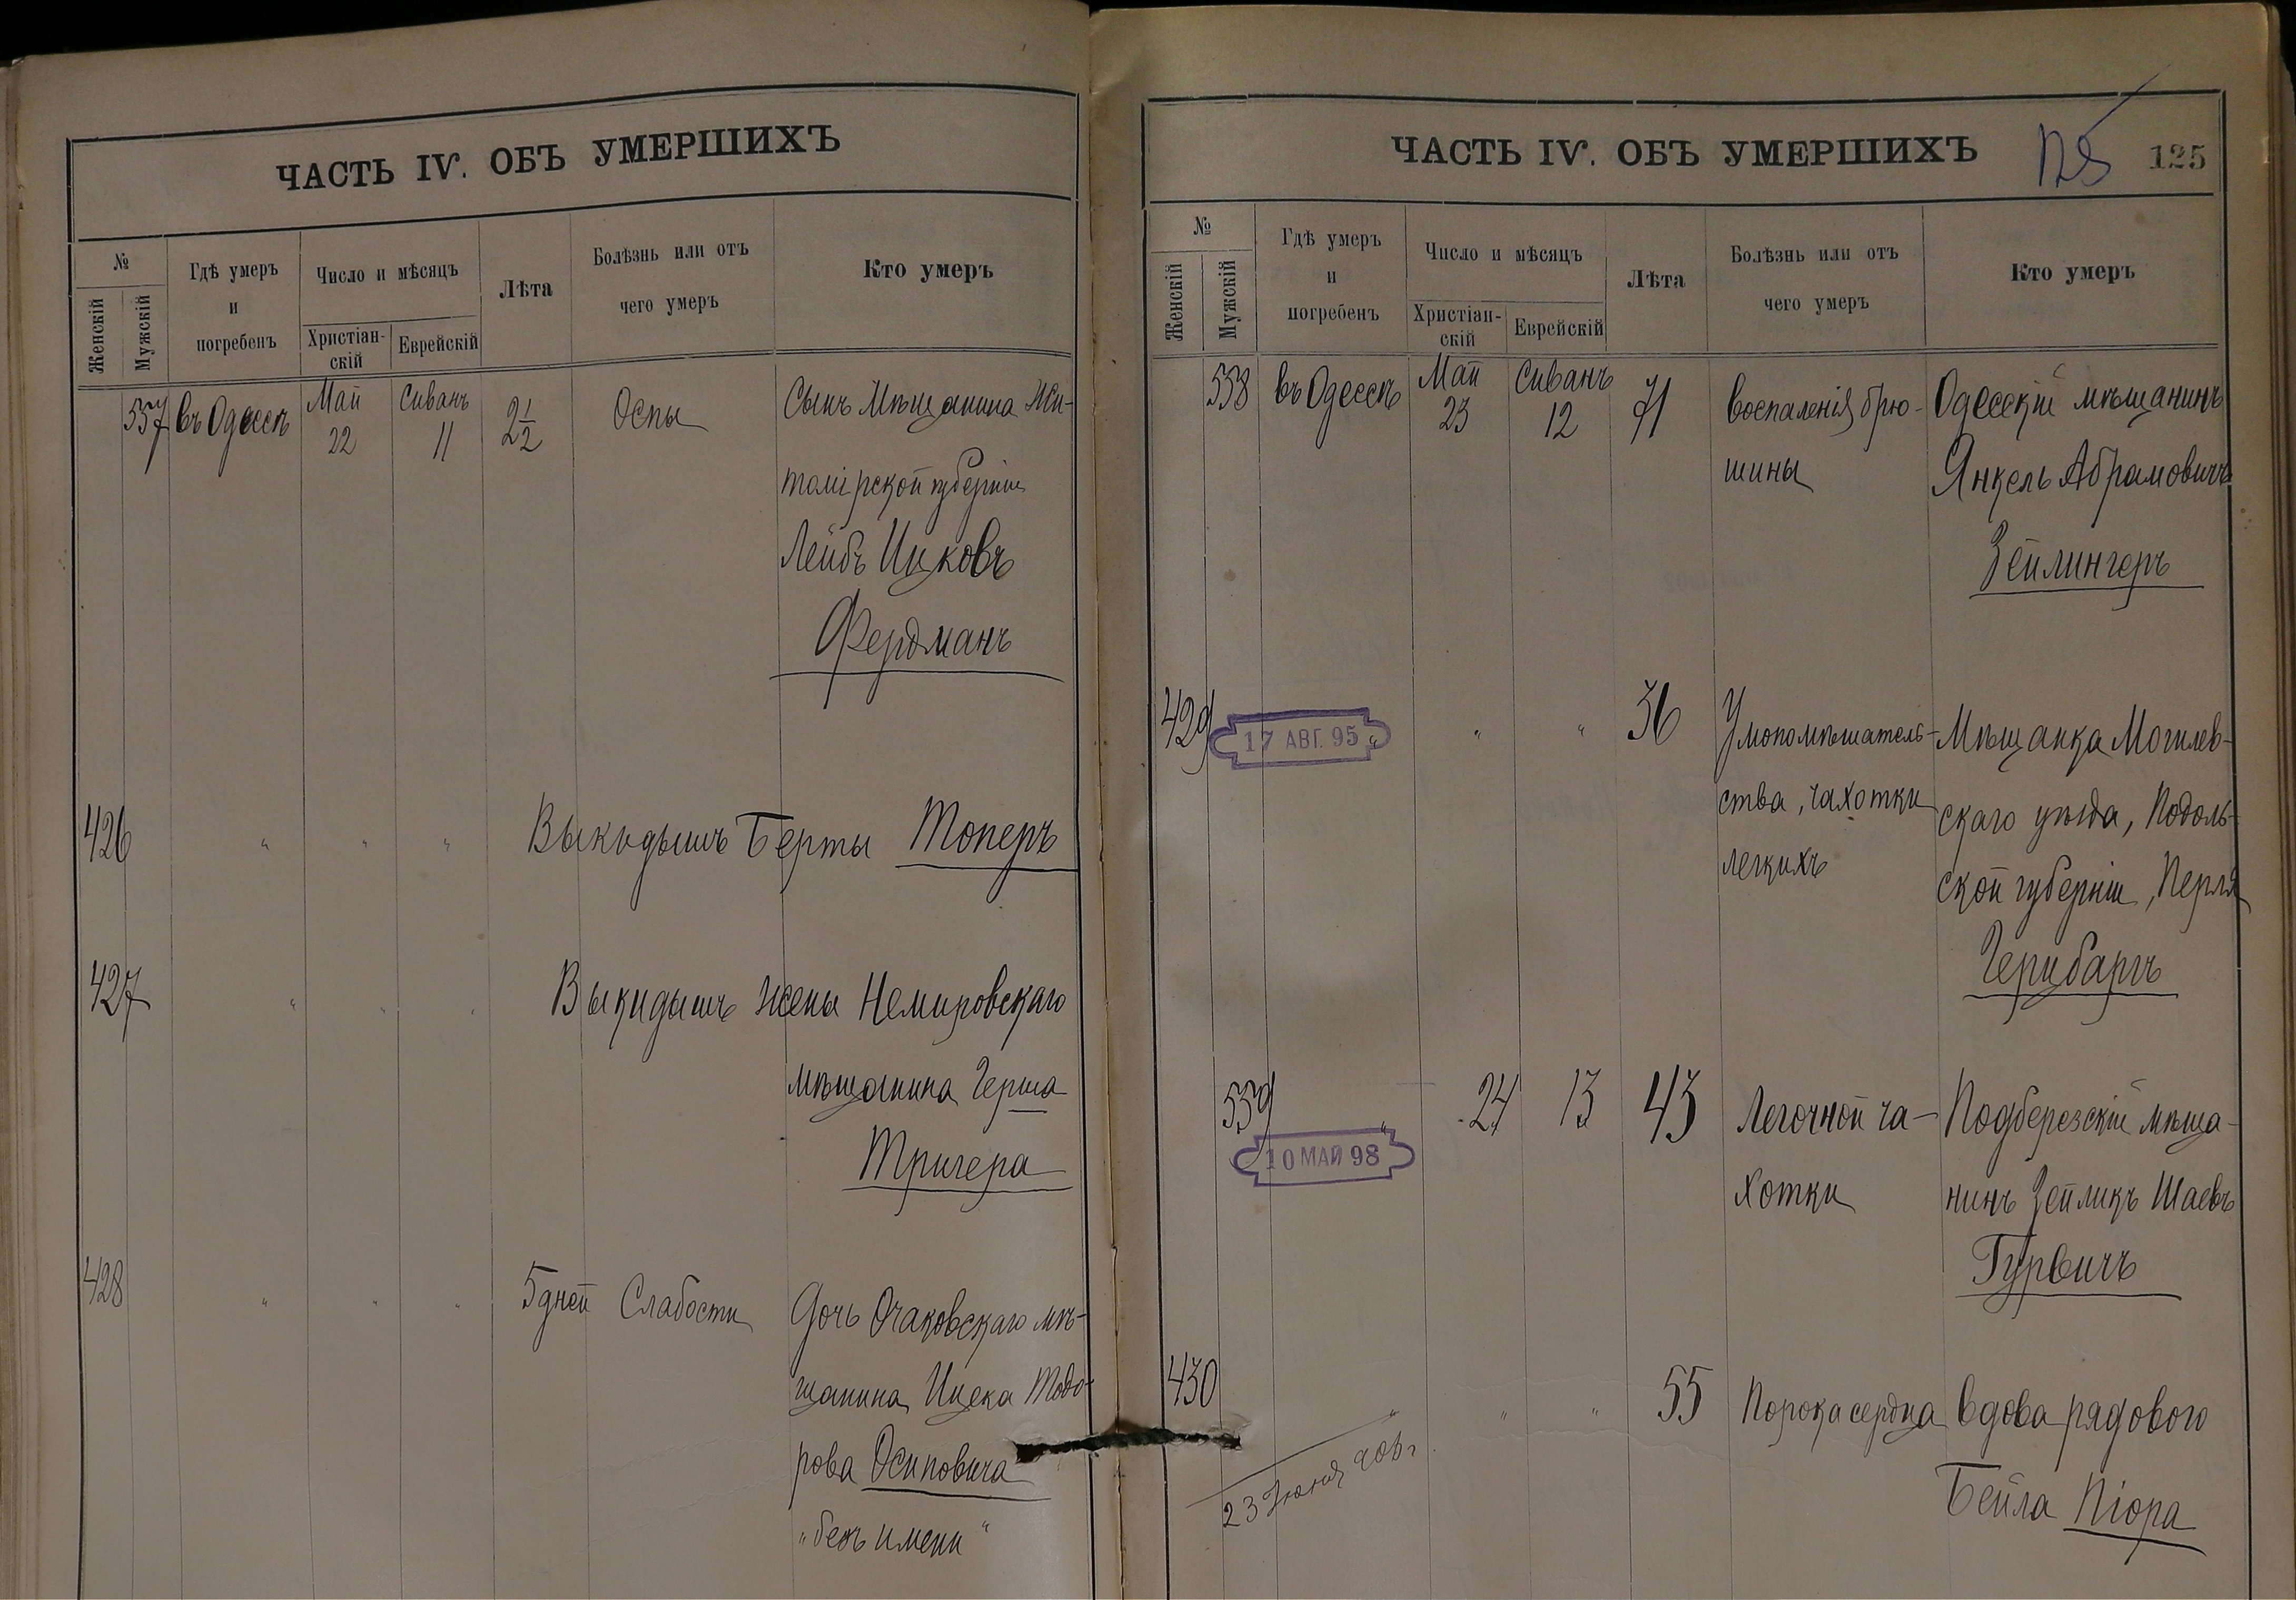 ЧАСТЬ IV. ОБЪ УМЕРШИХЪ
№
Женскій
Мужскій
Гдѣ умеръ
и
погребенъ
Число и мѣсяцъ
Христіан-
скій
Еврейскій
Лѣта
Болѣзнь или отъ
чего умеръ
Кто умеръ
537 въ Одессѣ Май Сиванъ 2 1/2 Оспы Сынъ Мѣщанина Жи-
22 11
томірской губерніи
Лейбъ Ицковъ
Фердманъ
426 " " " Выкидышъ Берты Топеръ
427 " " " Выкидышъ жены Немировскаго
мѣщанина Герша
Тригера
428 " " " 5 дней Слабости Дочь Очаковскаго мѣ-
щанина Ицека Тодо-
рова Осиповича
"безъ имени"
ЧАСТЬ IV. ОБЪ УМЕРШИХЪ
125 125
№
Женскій
Мужскій
Гдѣ умеръ
и
погребенъ
Число и мѣсяцъ
Христіан-
скій
Еврейскій
Лѣта
Болѣзнь или отъ
чего умеръ
Кто умеръ
538 въ Одессѣ Май Сиванъ 71 Воспаленія брю- Одесскій мѣщанинъ
23 12
шины Янкель Абрамовичъ
Зейлингеръ
429 " " " 36 Умопомѣшатель- Мѣщанка Могилев-
17 АВГ. 95
ства, чахотки скаго уѣзда, Подоль-
легкихъ ской губерніи, Перля
Герибаргъ
539 " 24 13 43 Легочной ча- Подберезскій мѣща-
10 МАЙ 98
хотки нинъ Зейликъ Шаевъ
Гурвичъ
430 " " " 55 Порока сердца Вдова рядового
23 Июня 903 г.
Бейла Піора